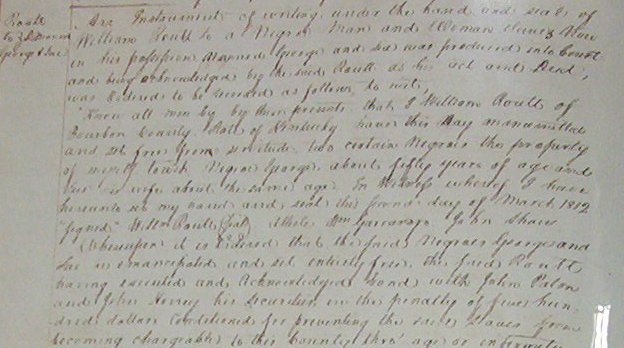 Routt
to
George & Sue
An Instrument of writing under the hand and seal of
William Routt to a Negro Man and Woman slaves Now
in his possession Named George and Sue was produced into Court
and being acknowledged by the said Routt as his act and Deed,
was Ordered to be recorded as follows to wit,
"Know all men by these presents that I William Routt of
Bourbon County State of Kentucky have this day manumitted
and set free from servitude two certain Negroes the property
of myself to wit Negro George about fifty years of age and
Sue his wife about the same age. In Witness whereof I have
hereunto set my hand and seal this day of March 1812
"signed" Willm Routt (Seal) Wm John Shaw
Whereupon it is Ordered that the said Negroes George and
Sue be emancipated and set entirely free, the said Routt
having executed and Acknowledged bond with John
and John Henry his Securities in the penalty of five hun
dred dollars Conditioned for preventing the said Slaves from
becoming chargeable to this County thro' age or infirmity